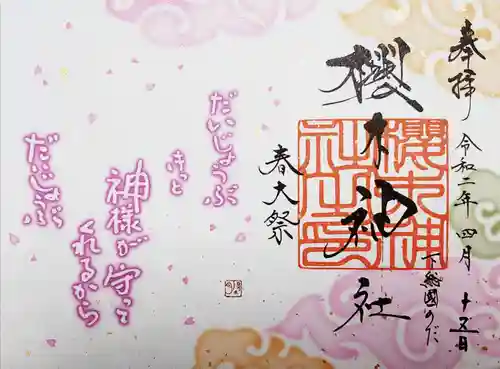 奉拝
令和二年四月十五日
櫻木神社
櫻木神社之印
下総國のだ
春大祭
だいじょうぶ
きっと
神様が守って
くれるから
だいじょぶ